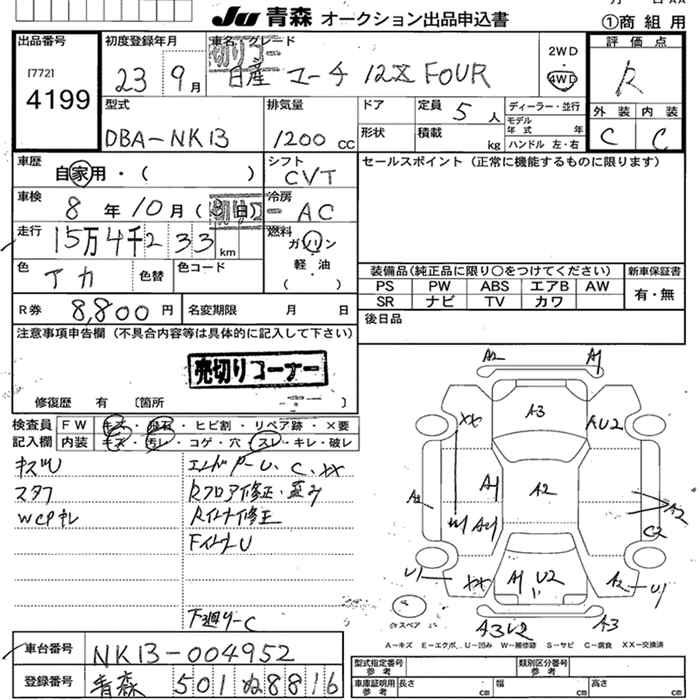 Ju 青森 オークション出品申込書
①商組用
出品番号
[772]
4199
初度登録年月
23 9月
車名 グレード
日産 マーチ 12X FOUR
2WD
4WD
評価点
R
外装 内装
C C
型式
DBA-NK13
排気量
1200 CC
ドア
定員 5 人
形状
積載 kg
ディーラー・並行
モデル年式 年
ハンドル 左・右
車歴
自家用・( )
シフト
CVT
車検
8 年 10 月 ( 8 日)
冷房
AC
走行
15万4千233 km
燃料
ガソリン
軽・油
( )
色
アカ
色替
色コード
R券
8,800 円
名変期限 月 日
セールスポイント (正常に機能するものに限ります)
装備品(純正品に限り○をつけてください)
新車保証書
PS PW ABS エアB AW
有・無
SR ナビ TV カワ
後日品
注意事項申告欄 (不具合内容等は具体的に記入して下さい)
売切りコーナー
修復歴 有 〔箇所 〕
検査員
記入欄
FW キズ・飛石・ヒビ割・リペア跡・×要
内装 キズ・汚レ・コゲ・穴・スレ・キレ・破レ
キズU
スタフ
WCPキレ
エンドパーU、C、XX
Rフロア修正・歪み
Rインナ修正
FインナU
下廻りーC
A2 A1
A3
XX
RU2
A1
A2
A2
A2
W1 A4
C2
U1
XX
A1 U2
A2 U1
スペア
A3U2
A3
A-キズ E-エクボ U-凹み W-補修跡 S-サビ C-腐食 XX-交換済
車台番号
NK13-004952
登録番号
青森 501 ぬ8816
型式指定番号
参考
類別区分番号
参考
車庫証明用
参考
長さ cm
幅 cm
高さ cm